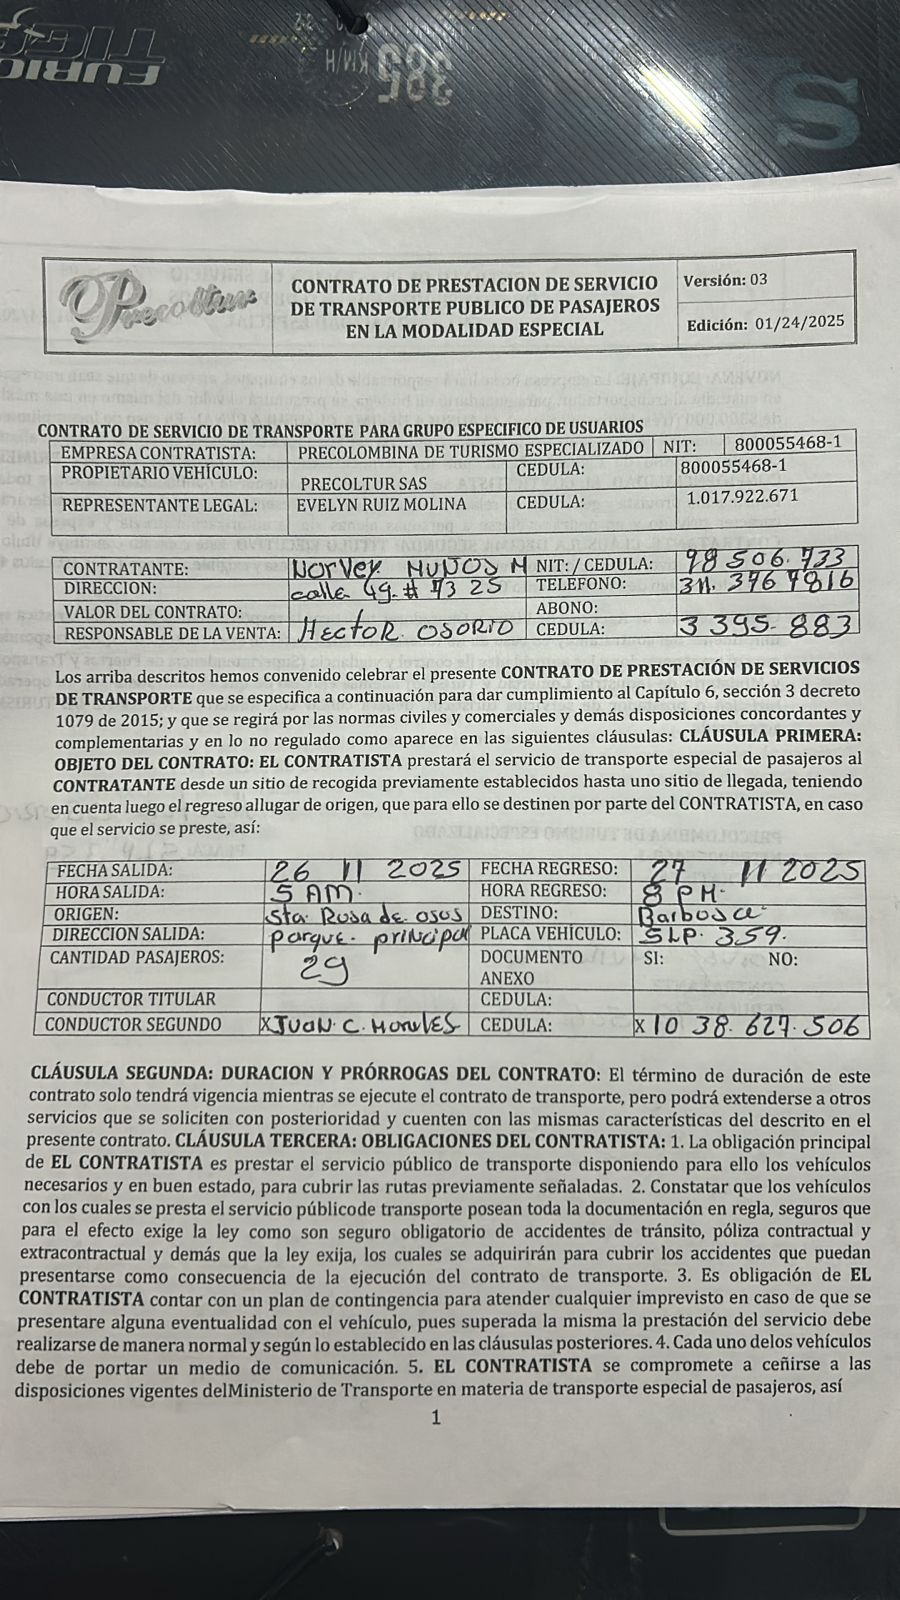 FURIO
385
KM/H
S
Precoltur
CONTRATO DE PRESTACION DE SERVICIO
DE TRANSPORTE PUBLICO DE PASAJEROS
EN LA MODALIDAD ESPECIAL
Versión: 03
Edición: 01/24/2025
CONTRATO DE SERVICIO DE TRANSPORTE PARA GRUPO ESPECIFICO DE USUARIOS
EMPRESA CONTRATISTA: PRECOLOMBINA DE TURISMO ESPECIALIZADO NIT: 800055468-1
PROPIETARIO VEHÍCULO: PRECOLTUR SAS CEDULA: 800055468-1
REPRESENTANTE LEGAL: EVELYN RUIZ MOLINA CEDULA: 1.017.922.671
CONTRATANTE: Norvey MUÑOS M NIT: / CEDULA: 98 506.733
DIRECCION: calle 49 # 73 25 TELEFONO: 311. 376 7816
VALOR DEL CONTRATO: ABONO:
RESPONSABLE DE LA VENTA: HECTOR OSORIO CEDULA: 3 395 883
Los arriba descritos hemos convenido celebrar el presente CONTRATO DE PRESTACIÓN DE SERVICIOS
DE TRANSPORTE que se especifica a continuación para dar cumplimiento al Capítulo 6, sección 3 decreto
1079 de 2015; y que se regirá por las normas civiles y comerciales y demás disposiciones concordantes y
complementarias y en lo no regulado como aparece en las siguientes cláusulas: CLÁUSULA PRIMERA:
OBJETO DEL CONTRATO: EL CONTRATISTA prestará el servicio de transporte especial de pasajeros al
CONTRATANTE desde un sitio de recogida previamente establecidos hasta uno sitio de llegada, teniendo
en cuenta luego el regreso allugar de origen, que para ello se destinen por parte del CONTRATISTA, en caso
que el servicio se preste, así:
FECHA SALIDA: 26 11 2025 FECHA REGRESO: 27 11 2025
HORA SALIDA: 5 AM. HORA REGRESO: 8 PM.
ORIGEN: Sta. Rosa de osos DESTINO: Barbosa
DIRECCION SALIDA: parque. principal PLACA VEHÍCULO: SLP. 359.
CANTIDAD PASAJEROS: 29 DOCUMENTO ANEXO SI: NO:
CONDUCTOR TITULAR CEDULA:
CONDUCTOR SEGUNDO X JUAN. C. Morales CEDULA: X 10 38. 627. 506
CLÁUSULA SEGUNDA: DURACION Y PRÓRROGAS DEL CONTRATO: El término de duración de este
contrato solo tendrá vigencia mientras se ejecute el contrato de transporte, pero podrá extenderse a otros
servicios que se soliciten con posterioridad y cuenten con las mismas características del descrito en el
presente contrato. CLÁUSULA TERCERA: OBLIGACIONES DEL CONTRATISTA: 1. La obligación principal
de EL CONTRATISTA es prestar el servicio público de transporte disponiendo para ello los vehículos
necesarios y en buen estado, para cubrir las rutas previamente señaladas. 2. Constatar que los vehículos
con los cuales se presta el servicio públicode transporte posean toda la documentación en regla, seguros que
para el efecto exige la ley como son seguro obligatorio de accidentes de tránsito, póliza contractual y
extracontractual y demás que la ley exija, los cuales se adquirirán para cubrir los accidentes que puedan
presentarse como consecuencia de la ejecución del contrato de transporte. 3. Es obligación de EL
CONTRATISTA contar con un plan de contingencia para atender cualquier imprevisto en caso de que se
presentare alguna eventualidad con el vehículo, pues superada la misma la prestación del servicio debe
realizarse de manera normal y según lo establecido en las cláusulas posteriores. 4. Cada uno delos vehículos
debe de portar un medio de comunicación. 5. EL CONTRATISTA se compromete a ceñirse a las
disposiciones vigentes delMinisterio de Transporte en materia de transporte especial de pasajeros, así
1